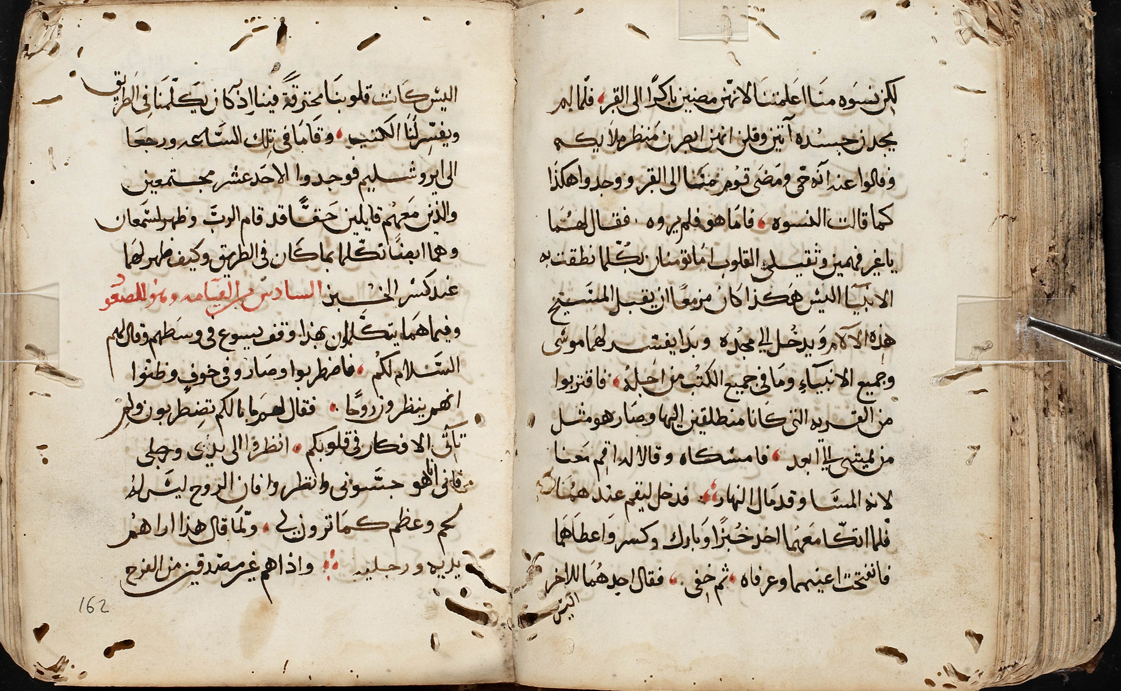 لكن نسوه منا اعلمننا لانهن مضين باكرًا الى القبر فلما لم
يجدن جسده آتين وقلن انهن ابصرن منظر ملايكه
وقالوا عنه انه حي ومضى قوم منا الى القبر ووجدوا هكذا
كما قالت النسوه فاما هو فلم يروه فقال لهما
ياغير فهمين وثقيلى القلوب اما تومنان بكلما نطقت به
الانبيا اليس هكذا كان مزمعًا ان يقبل المسيح
هذه الالام ويدخل الى مجده وبدا يفسر لهما موسى
وجميع الانبياء وما في جميع الكتب من اجله فاقتربوا
من القريه التى كانا منطلقين اليها وصار هو مثل
من يمشى الى ابعد فامسكاه وقالا له اقم معنا
لانه المسا وقد مال النهار فدخل ليقم عندهما
فلما اتكا معهما اخذ خبزًا وبارك وكسر واعطاهما
فانفتحت اعينهما وعرفاه ثم خفي فقال احدهما للاخر
اليس
اليس كانت قلوبنا محترقة فينا اذ كان يكلمنا في الطريق
ويفسر لنا الكتب وقاما في تلك الساعه ورجعا
الى ايروشليم فوجدوا الاحد عشر مجتمعين
والذين معهم قايلين حقًا قد قام الرب وظهر لسمعان
وهما ايضًا تكلما بما كان في الطريق وكيف ظهر لهما
عند كسر الخبز السادس من القيامه وهو للصعود
وفيما هما يتكلمان بهذا وقف يسوع في وسطهم وقال لهم
السلام لكم فاضطربوا وصاروا في خوف وظنوا
انهم ينظرون روحًا فقال لهم ما بالكم تضطربون ولم
تاتى الافكار في قلوبكم انظروا الى يدي ورجلي
فانى انا هو جسوني وانظروا فان الروح ليس له
لحم وعظم كما ترون لي ولما قال هذا اراهم
يديه ورجليه واذ هم غير مصدقين من الفرح
162